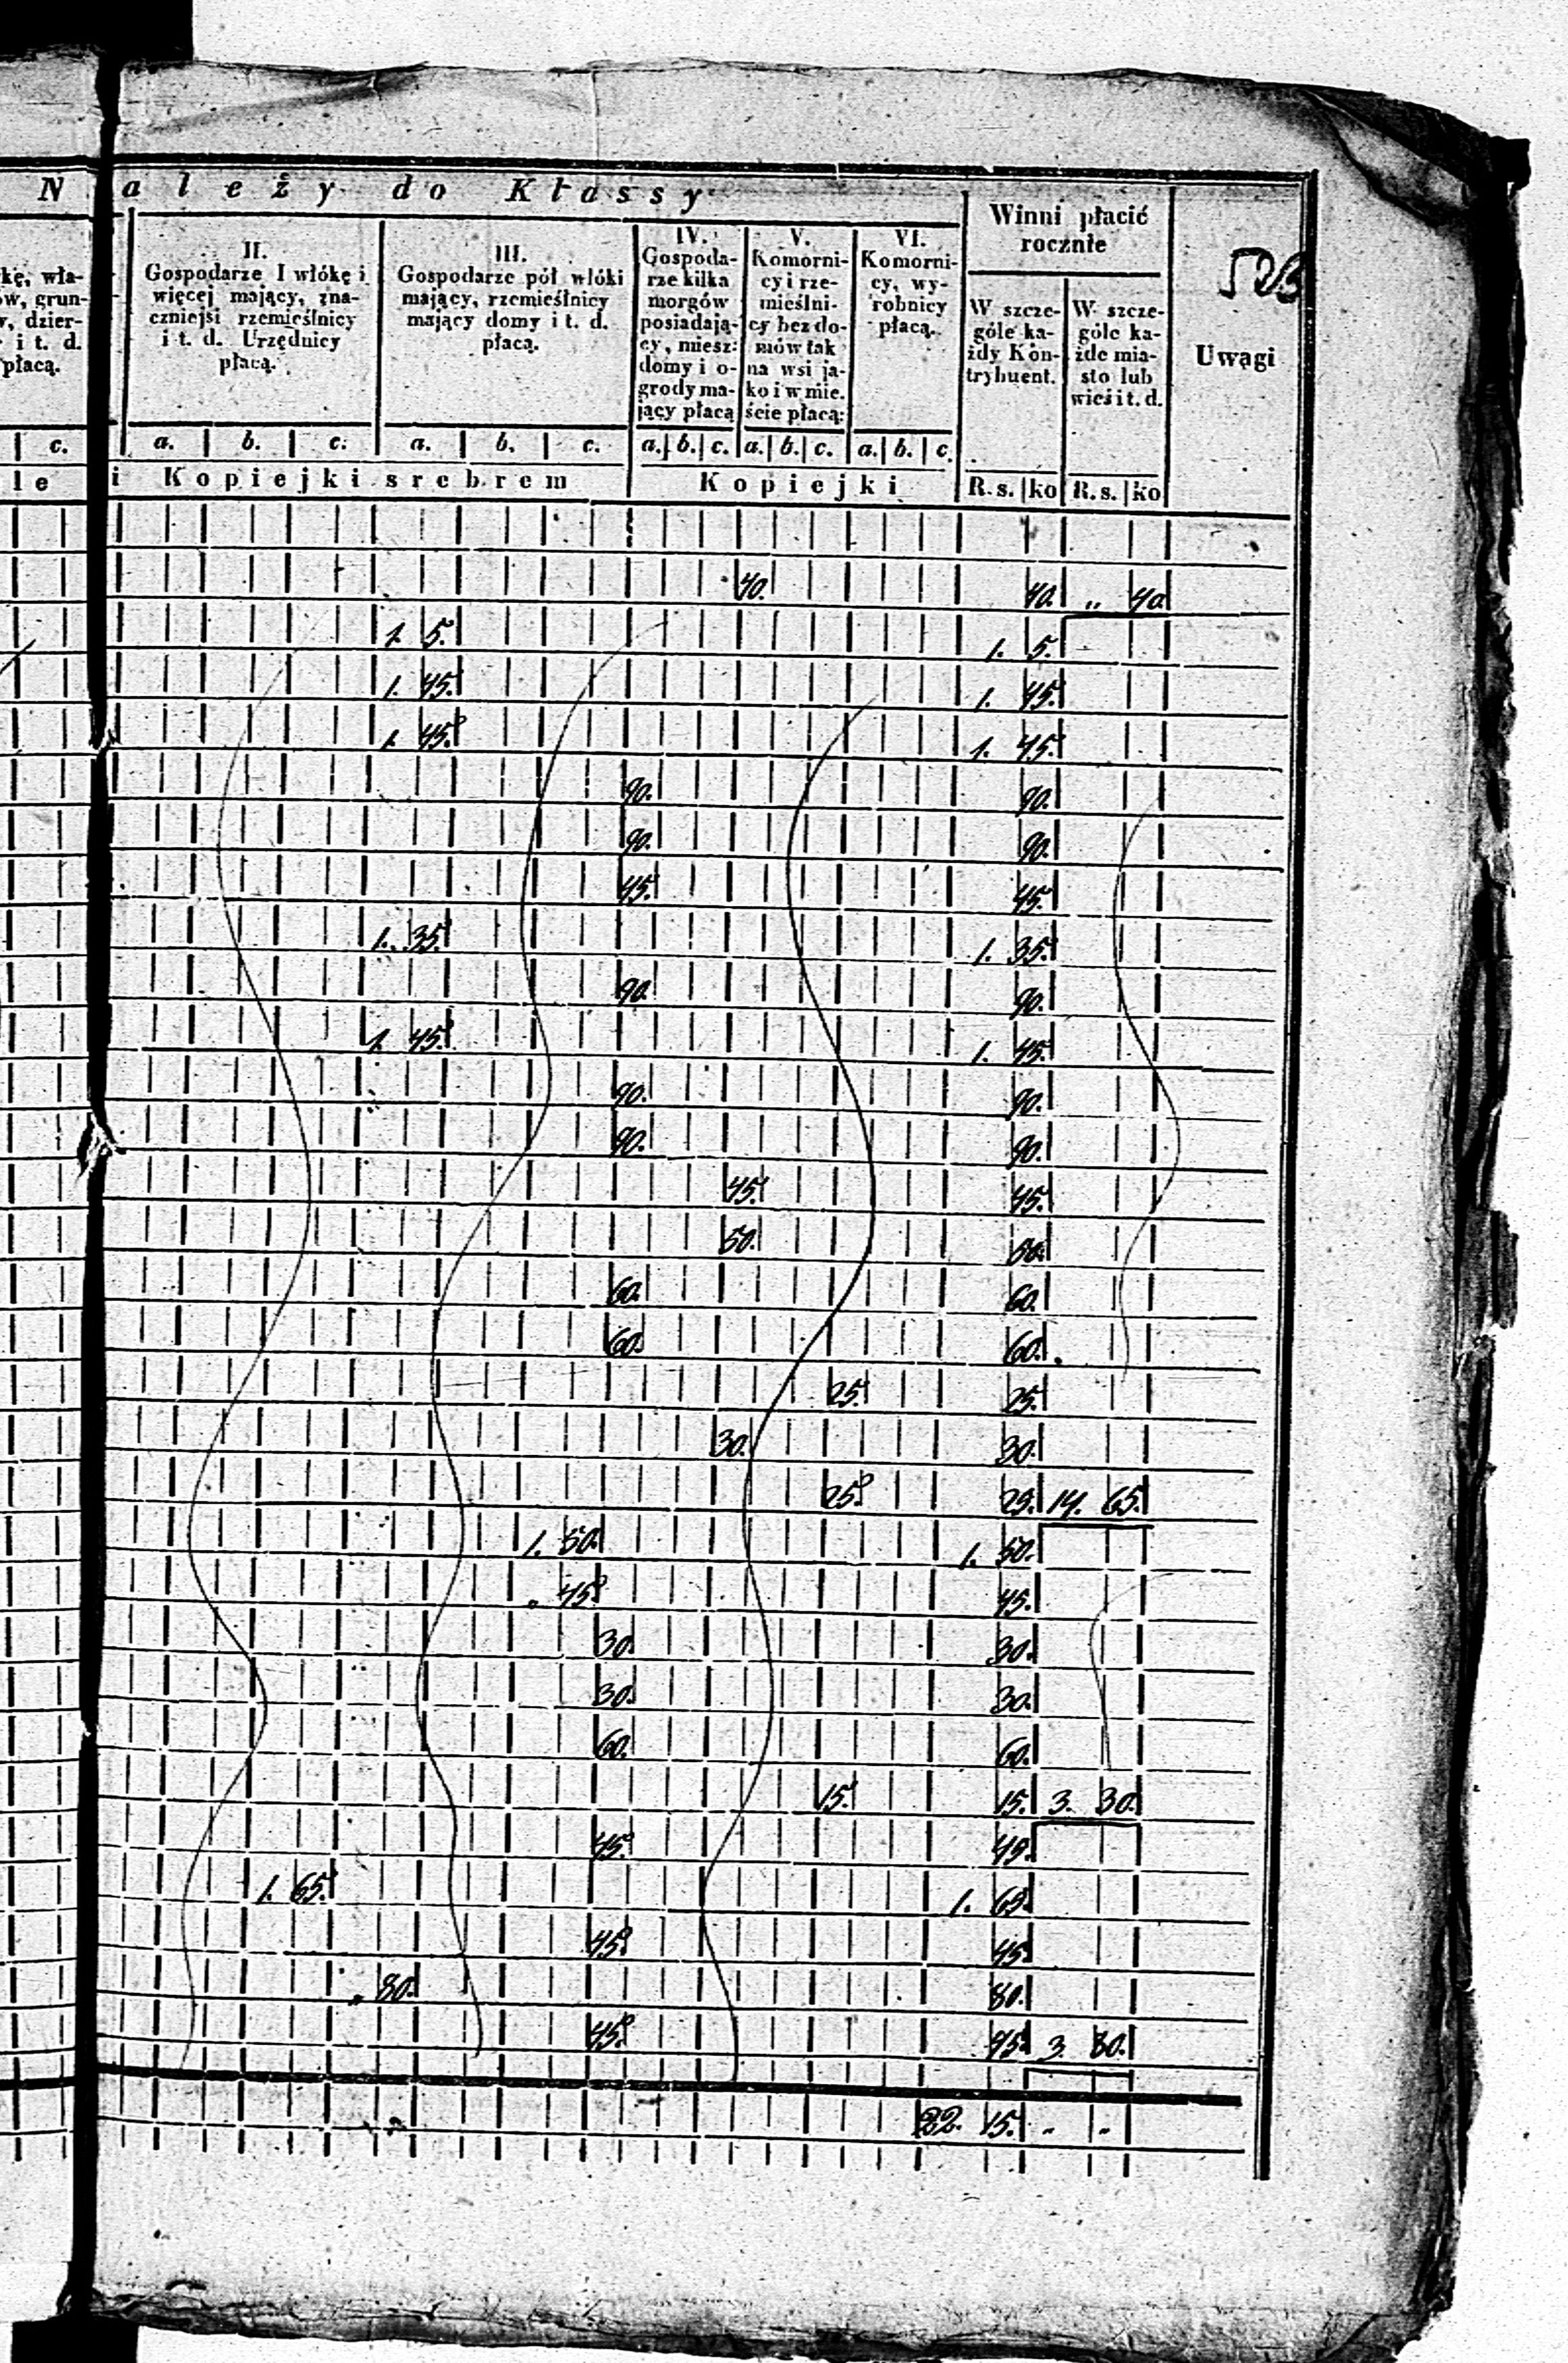 N ależy do Klassy
Winni płacić
rocznie
526
kę, wła-
ów, grun-
, dzier-
i t. d.
płacą.
II.
Gospodarze I włókę i
więcej mający, zna-
czniejsi rzemieślnicy
i t. d. Urzędnicy
płacą.
III.
Gospodarze pół włóki
mający, rzemieślnicy
mający domy i t. d.
płacą.
IV.
Gospoda-
rze kilka
morgów
posiadają-
cy, miesz:
domy i o-
grody ma-
jący płacą
V.
Komorni-
cy i rze-
mieślni-
cy bez do-
mów tak
na wsi ja-
ko i w mie.
ście płacą:
VI.
Komorni-
cy, wy-
robnicy
płacą.
W szcze-
góle ka-
żdy Kon-
trybuent.
W szcze-
góle ka-
żde mia-
sto lub
wieś i t. d.
Uwagi
c. a. b. c. a. b. c. a. b. c. a. b. c. a. b. c.
le i Kopiejki srebrem Kopiejki R. s. ko R. s. ko
40. 40. „ 40.
1. 5. 1. 5.
1. 45. 1. 45.
1. 45. 1. 45.
90. 90.
90. 90.
45. 45.
1. 35. 1. 35.
90. 90.
1. 45. 1. 45.
90. 90.
90. 90.
45. 45.
50. 50.
60. 60.
60. 60.
25. 25.
30. 30.
25. 25. 14. 65.
1. 50. 1. 50.
. 45. 45.
30. 30.
30. 30.
60. 60.
15. 15. 3. 30.
45. 45.
1. 65. 1. 65.
45. 45.
„ 80. 80.
45. 45. 3. 80.
22. 15. „ „